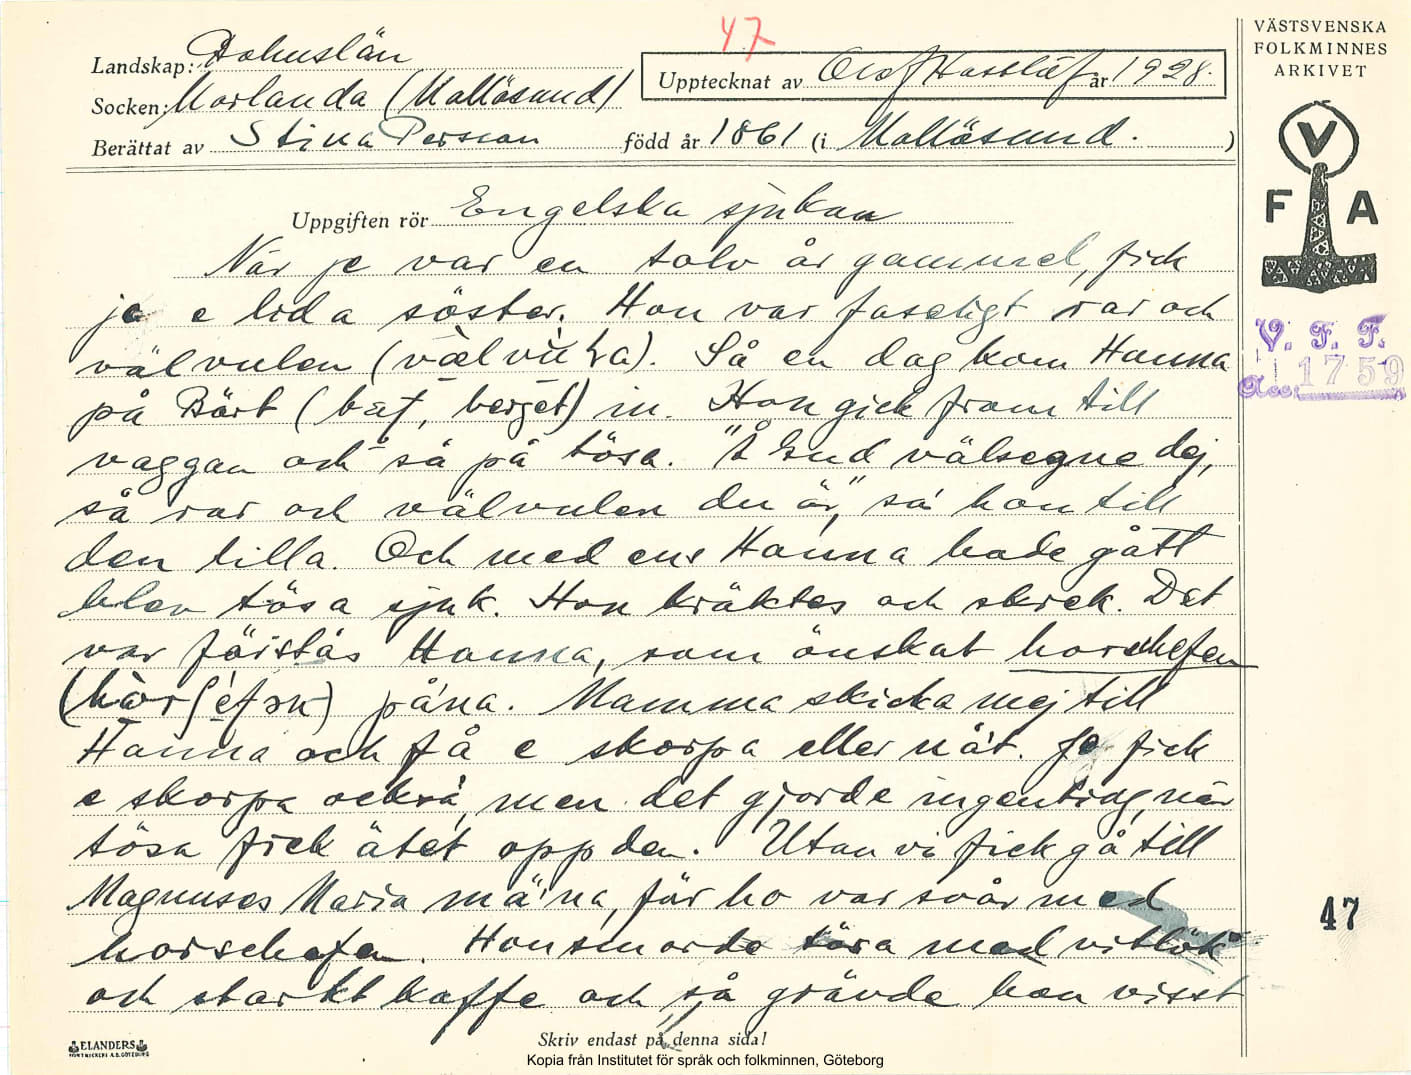 47
VÄSTSVENSKA
FOLKMINNES
ARKIVET
Landskap: Bohuslän
Upptecknat av Olof Hasslöf år 1928.
Socken: Morlanda (Mollösund)
Berättat av Stina Persson född år 1861 (i Mollösund. )
V
F A
Uppgiften rör Engelska sjukan
När je var en tolv år gammel, fick
je e lida söster. Hon var faseligt rar och
välvulen (). Så en dag kom Hanna
på Bärt (, berget) in. Hon gick fram till
vaggan och så på tösa. "Å Gud välsegne dej,
så rar och välvulen du är," sa hon till
den lilla. Och med ens Hanna hade gått
blev tösa sjuk. Hon kräktes och skrek. Det
var förstås Hanna, som önskat horschefen
() på'na. Mamma skicka mej till
Hanna och få e skorpa eller nåt. Je fick
e skorpa också, men det gjorde ingenting, när
tösa fick ätet opp den. Utan vi fick gå till
Magnuses Maria mä'na, för ho var svår med
horschefen. Hon smorde tösa med vitlök
och starkt kaffe och så grävde hon visst
V. F. F.
Acc. 1759
47
ELANDERS
BOKTRYCKERI A.B. GÖTEBORG
Skriv endast på denna sida!
Kopia från Institutet för språk och folkminnen, Göteborg